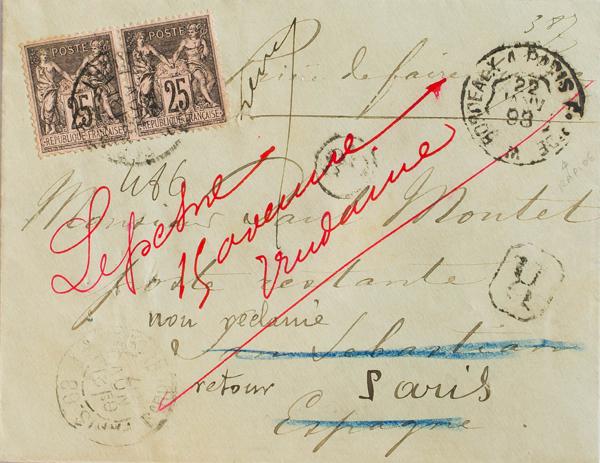 POSTE POSTE
25 25
REPUBLIQUE FRANÇAISE REPUBLIQUE FRANÇAISE
387
Prière de faire
BORDEAUX A PARIS
22
JANV
88
486
Monsieur Paul Montet
Lepesne
15 avenue
Trudaine
poste restante
R
non réclamé
San Sebastian
retour Paris
Espagne